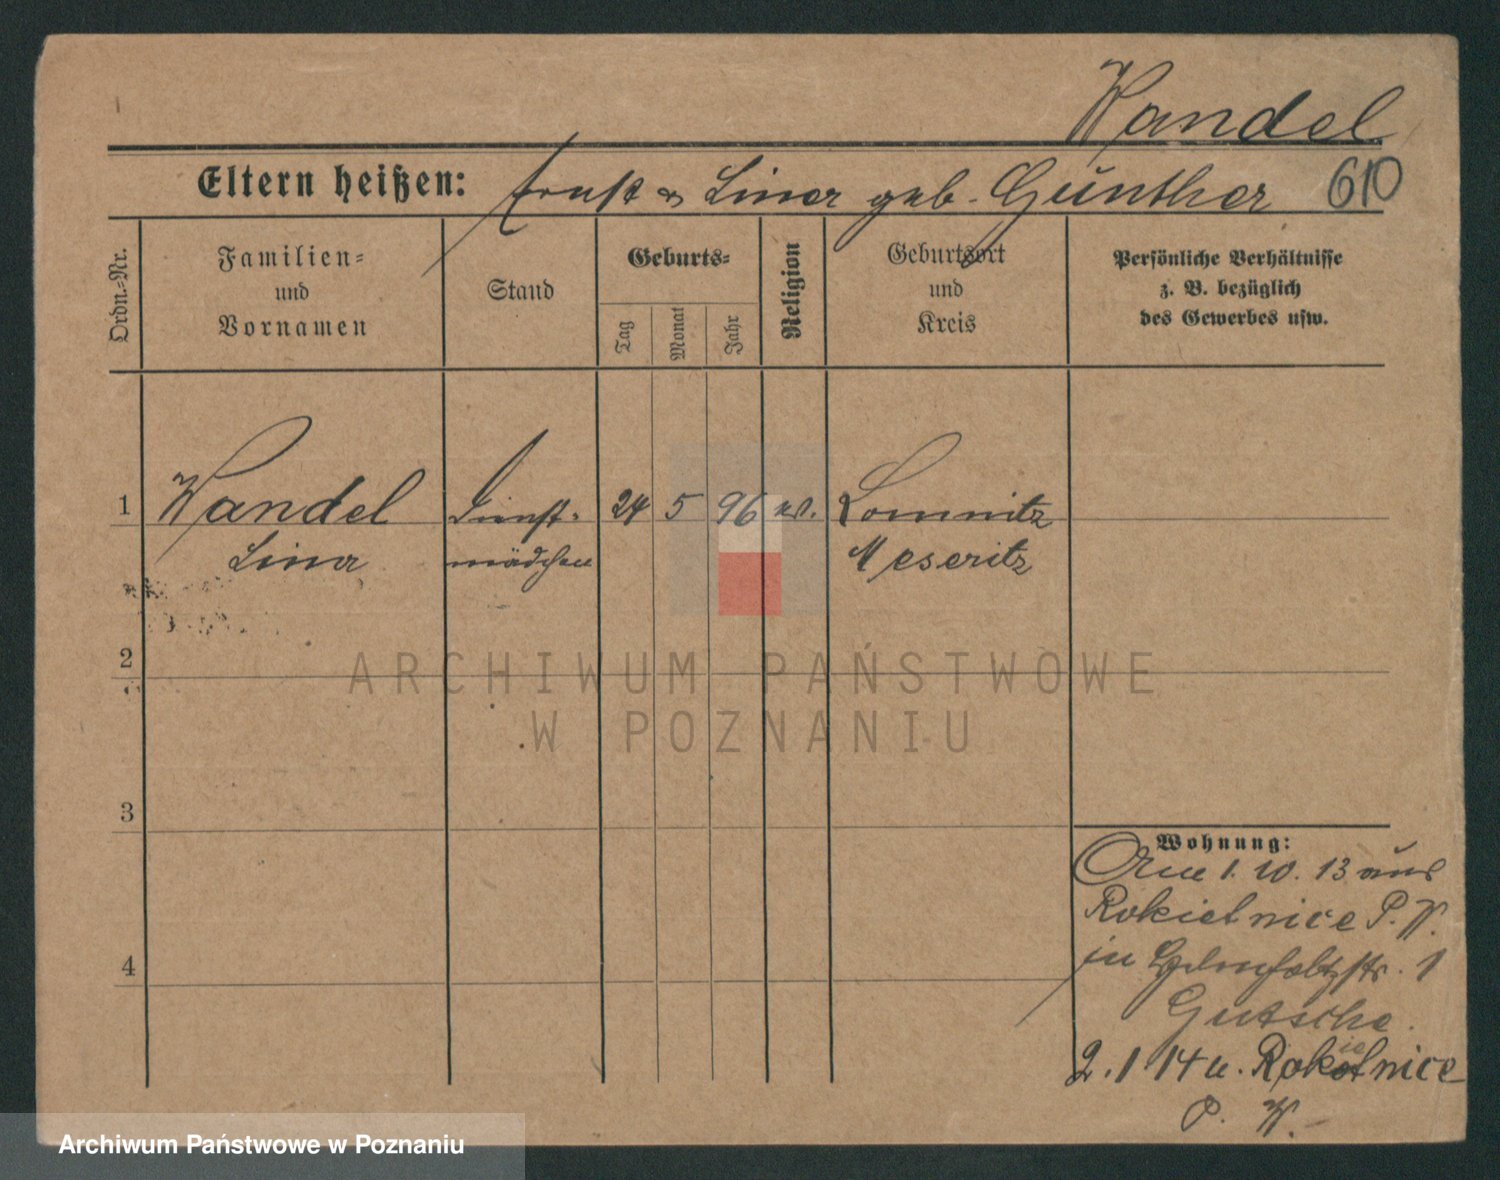 Wandel
Eltern heißen: Ernst u Lina geb. Günther 610
Ordn.-Nr.
Familien- und Vornamen
Stand
Geburts-
Tag
Monat
Jahr
Religion
Geburtsort und Kreis
Persönliche Verhältnisse
z. B. bezüglich
des Gewerbes usw.
1 Wandel Dienst- 24 5 96 ev. Lomnitz
Lina mädchen Meseritz
2
3
4
Wohnung:
1. 10. 13 aus
Rokietnice P. W.
in 1
Gutsche.
2. 1 14 u. Rokietnice
P. W.
ARCHIWUM PAŃSTWOWE
W POZNANIU
Archiwum Państwowe w Poznaniu